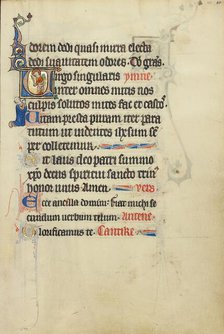 dorem dedi quasi mirra electa
dedi suavitatem odoris. Deo gras
Virgo singularis ymne
inter omnes mitis nos
culpis solutos mites fac et castos
Vitam presta puram iter para
tutum ut videntes ihesum semper
colletemur
Sit laus deo patri summo
xpo decus spiritui sancto
honor unus Amen vers
Ecce ancilla domini fiat michi se
cundum verbum tuum Antene
Glorificamus te Cantike